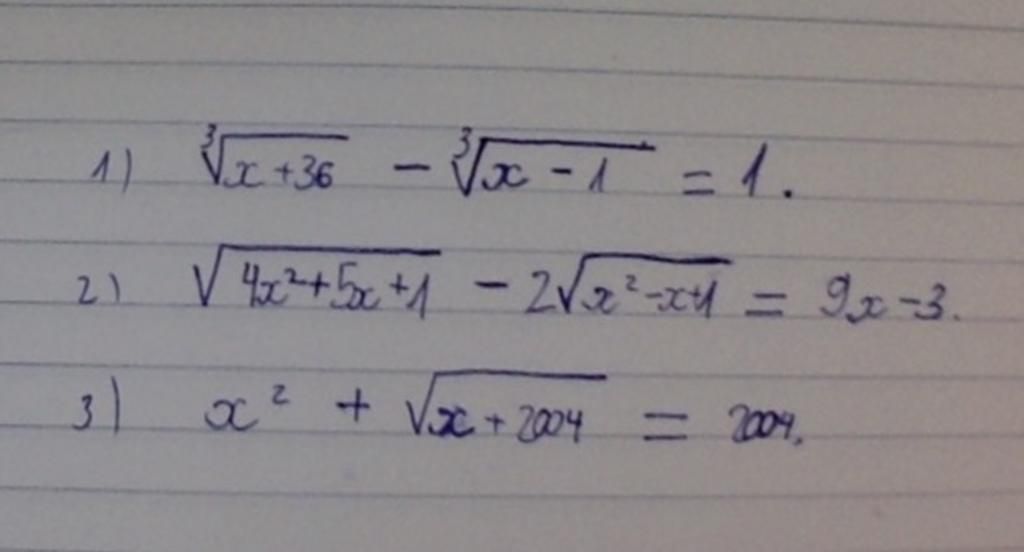 1) ∛(x+36) − ∛(x−1) = 1.
2) √(4x²+5x+1) − 2√(x²−x+1) = 9x−3.
3) x² + √(x+2004) = 2004.